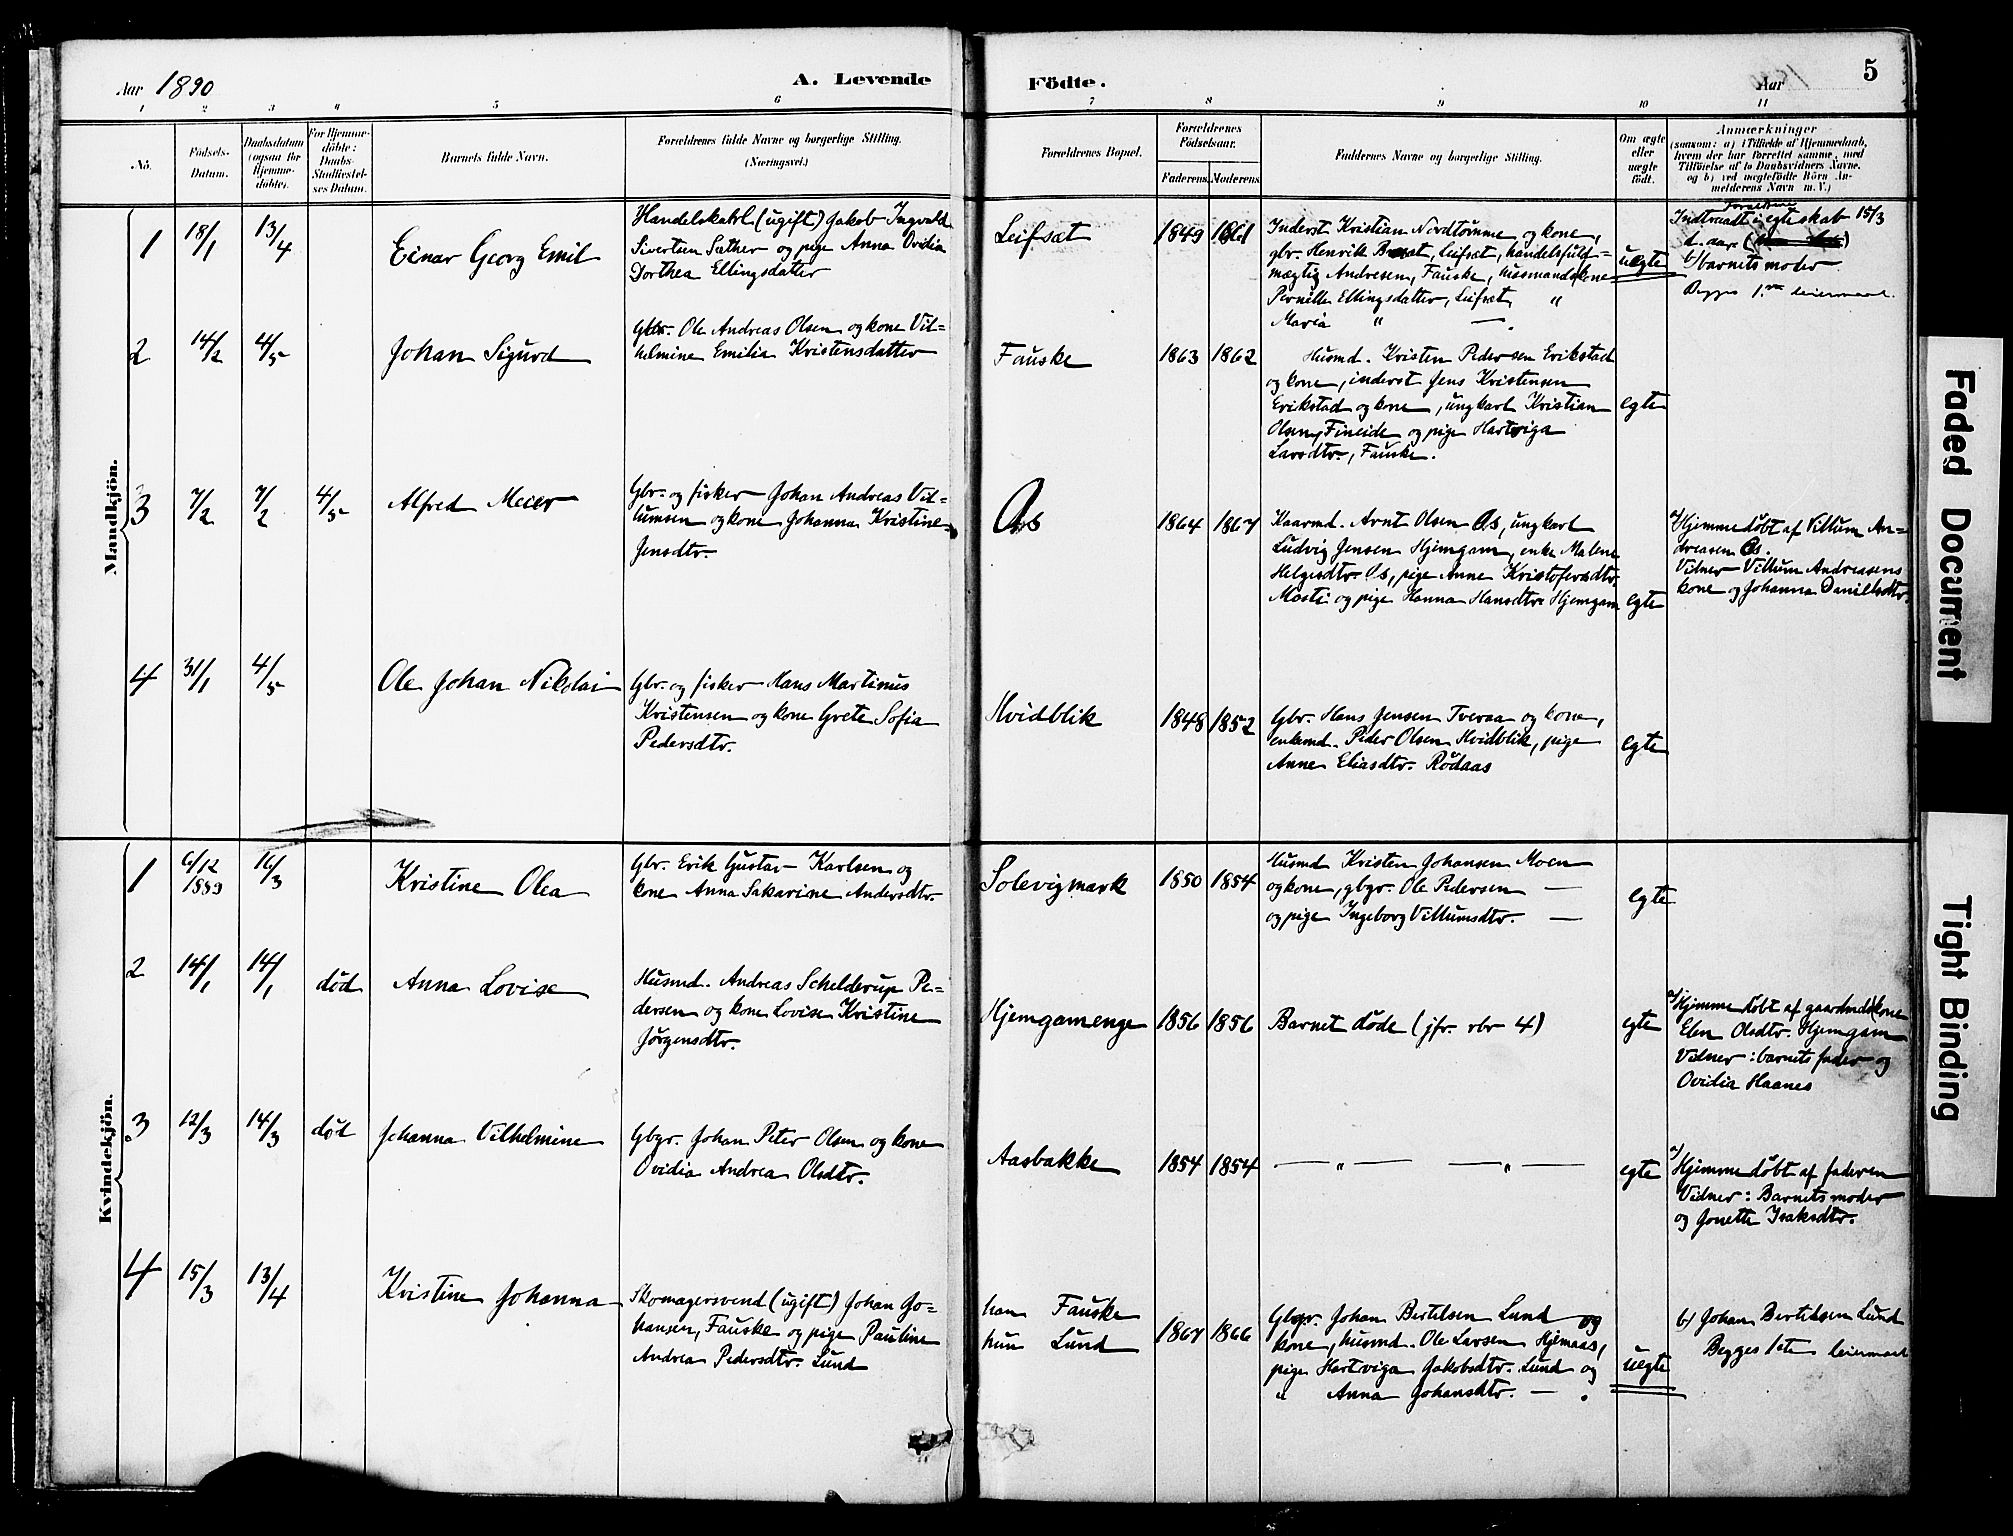 Aar 1890
A. Levende
Födte.
Aar
5
1 2 3 4 5 6
7 8 9 10 11
No.
Födsels-
Datum.
Daabsdatum
(ogsaa for
Hjemme-
döbte).
For Hjemme-
döbte:
Daabs-
Stadfæstel-
ses Datum.
Barnets fulde Navn.
Forældrenes fulde Navne og borgerlige Stilling.
(Næringsvei.)
Forældrenes Bopæl.
Forældrenes
Födselsaar.
Faderens. Moderens.
Faddernes Navne og borgerlige Stilling.
Om ægte
eller
uægte
födt.
Anmærkninger
(saasom: a) i Tilfælde af Hjemmedaab,
hvem der har forrettet samme, med
Tilföielse af to Daabsvidners Navne.
og b) ved uægtefödte Börn An-
melderens Navn m. V.)
Mandkjön.
1
18/1
13/4
Einar Georg Emil
Handelskarl (ugift) Jakob Ingvald
Sivertsen Sæther og pige Anna Ovidia
Dorthea Ellingsdatter
Leifsæt
1849
1861
Inderst Kristian Nordtømme og kone,
gbr. Henrik Leifsæt, handelsfuld-
mægtig Andresen, Fauske, husmandskone
Pernille Ellingsdatter, Leifset, "
Maria " — .
uegte
Forældrene
Indtraadt i egteskab 15/3
d. aar.
b) barnets moder
Begges 1ste leiermaal.
2
14/2
4/5
Johan Sigurd
Gbr. Ole Andreas Olsen og kone Vil-
helmine Emilia Kristensdatter
Fauske
1863
1862
Husmd. Kristen Pedersen Erikstad
og kone, inderst Jens Kristensen
Erikstad og kone, ungkarl Kristian
Olsen, Fineide og pige Hartviga
Larsdtr., Fauske.
egte
3
7/2
7/2
4/5
Alfred Meier
Gbr. og fisker Johan Andreas Vil-
lumsen og kone Johanna Kristine
Jensdtr.
Os
1864
1867
Kaarmd. Arnt Olsen Os, ungkarl
Ludvig Jensen Hjemgam, enke Malene
Helgesdtr. Os, pige Anne Kristofersdtr.
Mosti og pige Hanna Hansdtr. Hjemgam
egte
a) Hjemmedøbt af Villum An-
dreasen Os.
Vidner Villum Andreasens
kone og Johanna Danielsdtr.
4
31/1
4/5
Ole Johan Nikolai
Gbr. og fisker Hans Martinus
Kristensen og kone Grete Sofia
Pedersdtr.
Hvidblik
1848
1852
Gbr. Hans Jensen Tveraa og kone,
enkemd. Peder Olsen Hvidblik, pige
Anne Eliasdtr. Rødaas
egte
Kvindekjön.
1
6/12
1889
16/3
Kristine Olea
Gbr. Erik Gustav Karlsen og
kone Anna Sakarine Andersdtr.
Solevigmark
1850
1854
Husmd Kristen Johansen Moen
og kone, gbgr. Ole Pedersen —
og pige Ingeborg Villumsdtr. —
egte
2
14/1
14/1
død
Anna Lovise
Husmd. Andreas Schelderup Pe-
dersen og kone Lovise Kristine
Jørgensdtr.
Hjemgamenge
1856
1856
Barnet døde (jfr. rbr 4)
egte
a) Hjemmedøbt af gaardmdskone
Elen Olsdtr. Hjemgam
Vidner: barnets fader og
Ovidia Haanes
3
12/3
14/3
død
Johanna Vilhelmine
Gbgr. Johan Peter Olsen og kone
Ovidia Andrea Olsdtr.
Aasbakke
1854
1854
— " — — " —
egte
a) Hjemmedøbt af faderen
Vidner: Barnets moder
og Jonette Isaksdtr.
4
15/3
13/4
Kristine Johanna
Skomagersvend (ugift) Johan Jo-
hansen, Fauske og pige Pauline
Andrea Pedersdtr. Lund
han Fauske
hun Lund
1867
1866
Gbgr. Johan Bertelsen Lund og
kone, husmd. Ole Larsen Hjemaas,
pige Hartviga Jakobsdtr. Lund og
" Anna Johansdtr. — .
uegte
b) Johan Bertelsen Lund
Begges 1ste leiermaal
Faded Document
Tight Binding